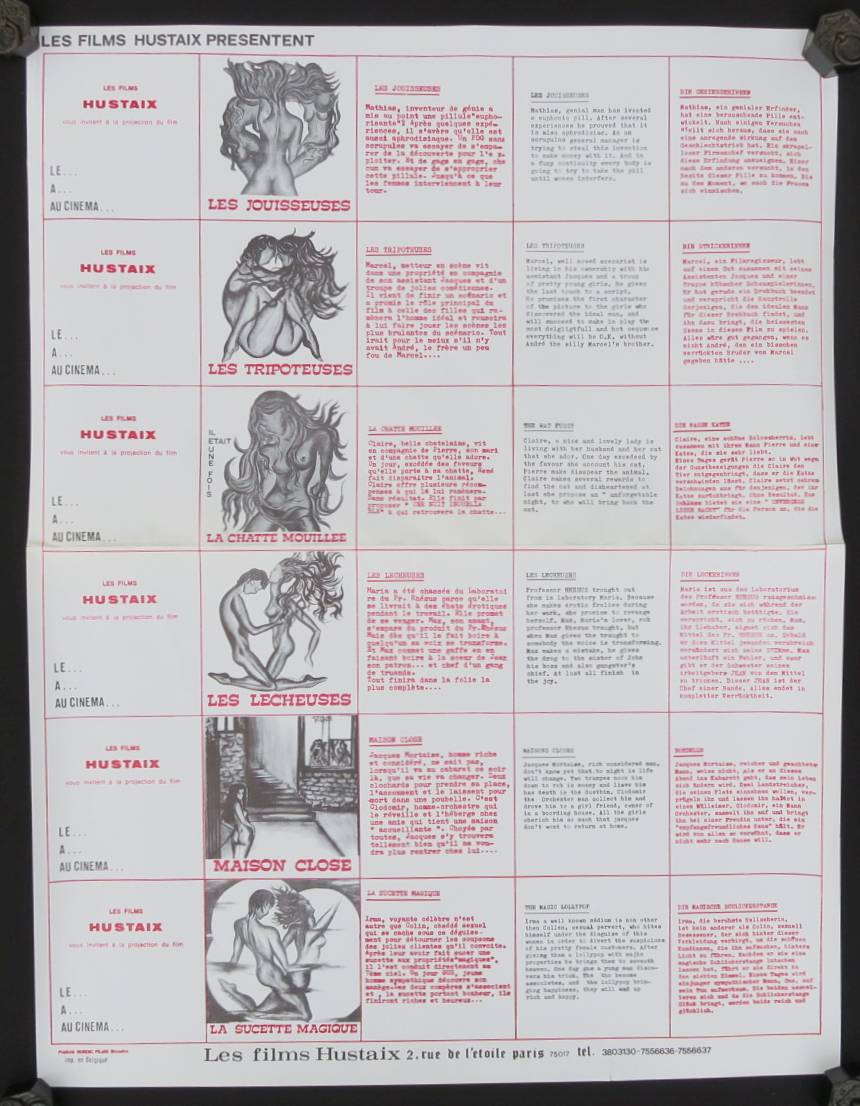 LES FILMS HUSTAIX PRESENTENT
LES FILMS
HUSTAIX
vous invient à la projection du film
LE...
A...
AU CINEMA...
LES JOUISSEUSES
LES JOUISSEUSES
Mathias, inventeur de génie a
mis au point une pillule"eupho-
risante"! Après quelques expé-
riences, il s'avère qu'elle est
aussi aphrodisiaque. Un PDG sans
scrupules va essayer de s'empa-
rer de la découverte pour l'e x-
ploiter. Et de gags en gags, cha
cun va essayer de s'approprier
cette pillule. Jusqu'à ce que
les femmes interviennent à leur
tour.
LES JOUISSEUSES
Mathias, genial man has invented
a euphonic pill. After several
experiences he prouved that it
is also aphrodisiac. An un
scrupules general manager is
trying to steal this invention
to make money with it. And in
a funy continuity every body is
going to try to take the pill
until women interfere.
DIE GENIESSERINNEN
Mathias, ein genialer Erfinder,
hat eine berauschende Pille ent-
wickelt. Nach einigen Versuchen
stellt sich heraus, dass sie auch
eine anregende wirkung auf den
Geschlechtstrieb hat. Ein skrupel-
loser Firmenchef versucht, sich
diese Erfindung anzueignen. Einer
nach dem anderen versucht, in den
Besitz dieser Pille zu kommen, bis
zu dem Moment, wo auch die Frauen
sich einmischen.
LES FILMS
HUSTAIX
vous invient à la projection du film
LE...
A...
AU CINEMA...
LES TRIPOTEUSES
LES TRIPOTEUSES
Marcel, metteur en scène vit
dans une propriété en compagnie
de son assistant Jacques et d'un
troupe de jolies comédiennes.
Il vient de finir un scénario et
a promis le rôle principal du
film à celle des filles qui ra-
mènera l'homme idéal et reussira
à lui faire jouer les scènes les
plus brulantes du scénario. Tout
irait pour le meiux s'il n'y
avait André, le frère un peu
fou de Marcel....
LES TRIPOTEUSES
Marcel, well nowed scenarist is
living in his ownership with his
assistant Jacques and a troup
of pretty young girls. He gives
the last touch to a script.
He promises the first character
of the picture to the girls who
discovered the ideal man, and
will succeed to make in play the
most deligtfull and hot sequence
everything will be O.K. without
André the silly Marcel's brother.
DIE STRICKERINNEN
Marcel, ein Filmregisseur, lebt
auf einem Gut zusammen mit seinem
Assistenten Jacques und einer
Truppe hübscher Schauspielerinnen.
Er hat gerade ein Drehbuch beendet
und verspricht die Hauptrolle
derjenigen, die den idealen Mann
für dieser Drehbuch findet, und
ihn dazu bringt, die heissesten
Szene in diesem Film zu spielen.
Alles wäre gut gegangen, wenn es
nicht André, den ein bisschen
verrückten Bruder von Marcel
gegeben hätte ....
LES FILMS
HUSTAIX
vous invient à la projection du film
LE...
A...
AU CINEMA...
IL ETAIT UNE FOIS
LA CHATTE MOUILLEE
LA CHATTE MOUILLEE
Claire, belle chatelaine, vit
en compagnie de Pierre, son mari
et d'une chatte qu'elle adore.
Un jour, excédée des faveurs
qu'elle porte à sa chatte, René
fait disparaître l'animal.
Claire offre plusieurs récom-
penses à qui la lui ramènera.
Sans résultat. Elle finit par
proposer " UNE NUIT INOUBLIA
BLE" à qui retrouvera la chatte...
THE WAT PUSSY
Claire, a nice and lovely lady is
living with her husband and her cat
that she ador. One day exceded by
the favour she account his cat,
Pierre make disapear the animal,
Claire makes several rewards to
find the cat and disheartened at
last she propose an " unforgetable
night, to who will bring back the
cat.
DIE NASSE KATZE
Claire, eine schöne Schlossherrin, lebt
zusammen mit ihrem Mann Pierre und einer
Katze, die sie sehr liebt.
Eines Tages gerät Pierre so in Wut wegen
der Gunstbezeigungen die Claire dem
Tier entgegenbringt, dass er die Katze
verschwinden lässt. Claire setzt mehrere
Belohnungen aus für denjenigen, der ihr
Katze zurückbringt. Ohne Resultat. Zum
Schluss bietet sie eine " UNVERGESS
LICHE NACHT" für die Person an, die die
Katze wiederfindet.
LES FILMS
HUSTAIX
vous invient à la projection du film
LE...
A...
AU CINEMA...
LES LECHEUSES
LES LECHEUSES
Maria a été chassée du laboratoi
re du Pr. Rhésus parce qu'elle
se livrait à des ébats érotiques
pendant le travail. Elle promet
de se venger. Max, son amant,
s'empare du produit du Pr.Rhésus
Mais dès qu'il le fait boire à
quelqu'un sa voix se transforme.
Et Max commet une gaffe en en
faisant boire à la soeur de Jean
son patron... et chef d'un gang
de truands.
Tout finira dans la folie la
plus complète....
LES LECHEUSES
Professor RHESUS trought out
from is laboratory Maria. Because
she makes erotic frolics during
her work, she promise to revenge
herself. Max, Maria's lover, rob
professor Rhesus trought, but
when Max gives the trought to
somebody the voice is transforming.
Max makes a mistake, he gives
the drug to the sister of John
his boss and also gangster's
chief. At last all finish in
the joy.
DIE LECKERINNEN
Maria ist aus dem Laboratorium
des Professor RHESUS rausgeschmis-
worden, da sie sich während der
Arbeit erotisch betätigte. Sie
verspricht, sich zu rächen. Max,
ihr Liebster, eignet sich das
Mittel des Pr. RHESUS an. Sobald
er dies Mittel jemanden verabreicht
verändert sich seine STIMME. Max
unterläuft ein Fehler, und zwar
gibt er der Schwester seines
Arbeitgebers JEAN von dem Mittel
zu trinken. Dieser JEAN ist der
Chef einer Bande. Alles endet in
kompletter Verrücktheit.
LES FILMS
HUSTAIX
vous invient à la projection du film
LE...
A...
AU CINEMA...
MAISON CLOSE
MAISON CLOSE
Jacques Mortaise, homme riche
et considéré, ne sait pas,
lorsqu'il va au cabaret ce soir
là, que sa vie va changer. Deux
clochards pour prendre sa place,
l'assomment et le laissent pour
mort dans une poubelle. C'est
Clodomir, homme-orchestre qui
le réveille et l'héberge chez
une amie qui tient une maison
" accueillante ". Choyée par
toutes, Jacques s'y trouvera
tellement bien qu'il ne vou-
dra plus rentrer chez lui....
MAISONS CLOSES
Jacques Mortaise, rich considered man,
don't know yet that to night is life
will change. Two trampes nock him
down to rob is money and lleave his
has death in the dustbin. Clodomir
the Orchester man collect his and
drove him to a girl friend, owner of
in a boording house. All the girls
cherich his so much that jacques
don't want to return at home.
BORDELLE
Jacques Mortaise, reicher und geachteter
Mann, weiss nicht, als er an diesem
Abend ins Kabarett geht, dass sein Leben
sich ändern wird. Zwei Landstreicher,
die seinen Platz einnehmen wollen, ver-
prügeln ihn und lassen ihn halbtot in
einem Mülleimer. Clodomir, ein Mann
Orchester, sammelt ihn auf und bringt
ihn bei einer Freundin unter, die ein
"empfangsfreundliches Haus" hält. Er
wird von allen so verwöhnt, dass er
nicht mehr nach Hause will.
LES FILMS
HUSTAIX
vous invient à la projection du film
LE...
A...
AU CINEMA...
LA SUCETTE MAGIQUE
LA SUCETTE MAGIQUE
Irma, voyante célèbre n'est
autre que Colin, obsédé sexuel
qui se cache sous ce déguise-
ment pour détourner les soupçons
des jolies clientes qu'il convoite.
Après leur avoir fait sucer une
sucette aux propriétés"magiques",
il l'est conduit directement au
7ème ciel. Un jour GUS, jeune
homme sympathique découvre son
manège.Les deux compères s'associent
et , la sucette portant bonheur, ils
finiront riches et heureux...
THE MAGIC LOLLYPOP
Irma a well known médium is non other
then Collen, sexual pervert, who hites
himself under the disguise of this
women in order to divert the suspicions
of his pretty female customers. After
giving them a lollypop with majic
properties he brings them to seventh
heaven. One day gus a yung man disco-
vers his trick. The two become
associates, and the lollypop brin-
ging happiness, they will end up
rich and happy.
DIE MAGISCHE SCHLICKERSTANGE
Irma, die berühmte Hellseherin,
ist kein anderer als Colin, sexuell
Besessener, der sich hinter dieser
Verkleidung verbirgt, um die schönen
Kundinnen, die ihn aufsuchen, hinters
Licht zu führen. Nachdem er sie eine
magische Schlickerstange lutschen
lassen hat, führt er sie direkt in
den siebten Himmel. Eines Tages wird
einjunger sympathischer Mann, Gus, auf
sein Tun aufmerksam. Die beiden assozi-
ieren sich und da die Schlickerstange
Glück bringt, werden beide reich und
glücklich.
imp. en Belgique
Les films Hustaix 2, rue de l'étoile paris 75017 tél. 3803130-7556636-7556637